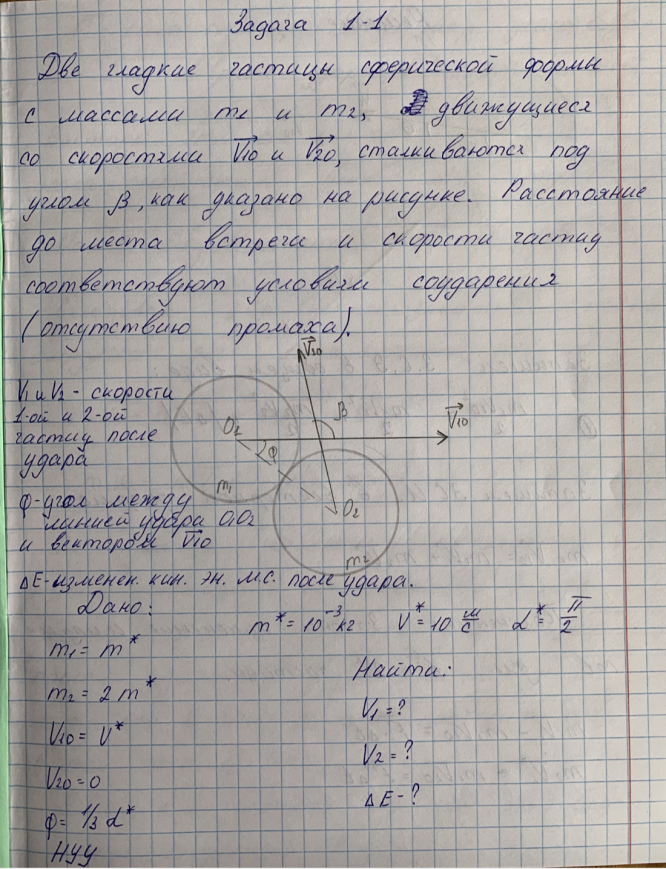 Задача 1-1
Две гладкие частицы сферической формы
с массами m1 и m2, движущиеся
со скоростями V10 и V20, сталкиваются под
углом β, как указано на рисунке. Расстояние
до места встречи и скорости частиц
соответствуют условиям соударения
(отсутствию промаха).
V10
V1 и V2 - скорости
1-ой и 2-ой
частиц после
удара
O2
β
V10
φ
m1
φ-угол между
линией удара O1O2
и вектором V10
O2
m2
ΔE-изменен. кин. эн. мс. после удара.
Дано:
m* = 10^-3 кг V* = 10 м/с α* = π/2
m1 = m*
m2 = 2m*
V10 = V*
V20 = 0
φ = 1/3 α*
НУУ
Найти:
V1 = ?
V2 = ?
ΔE - ?